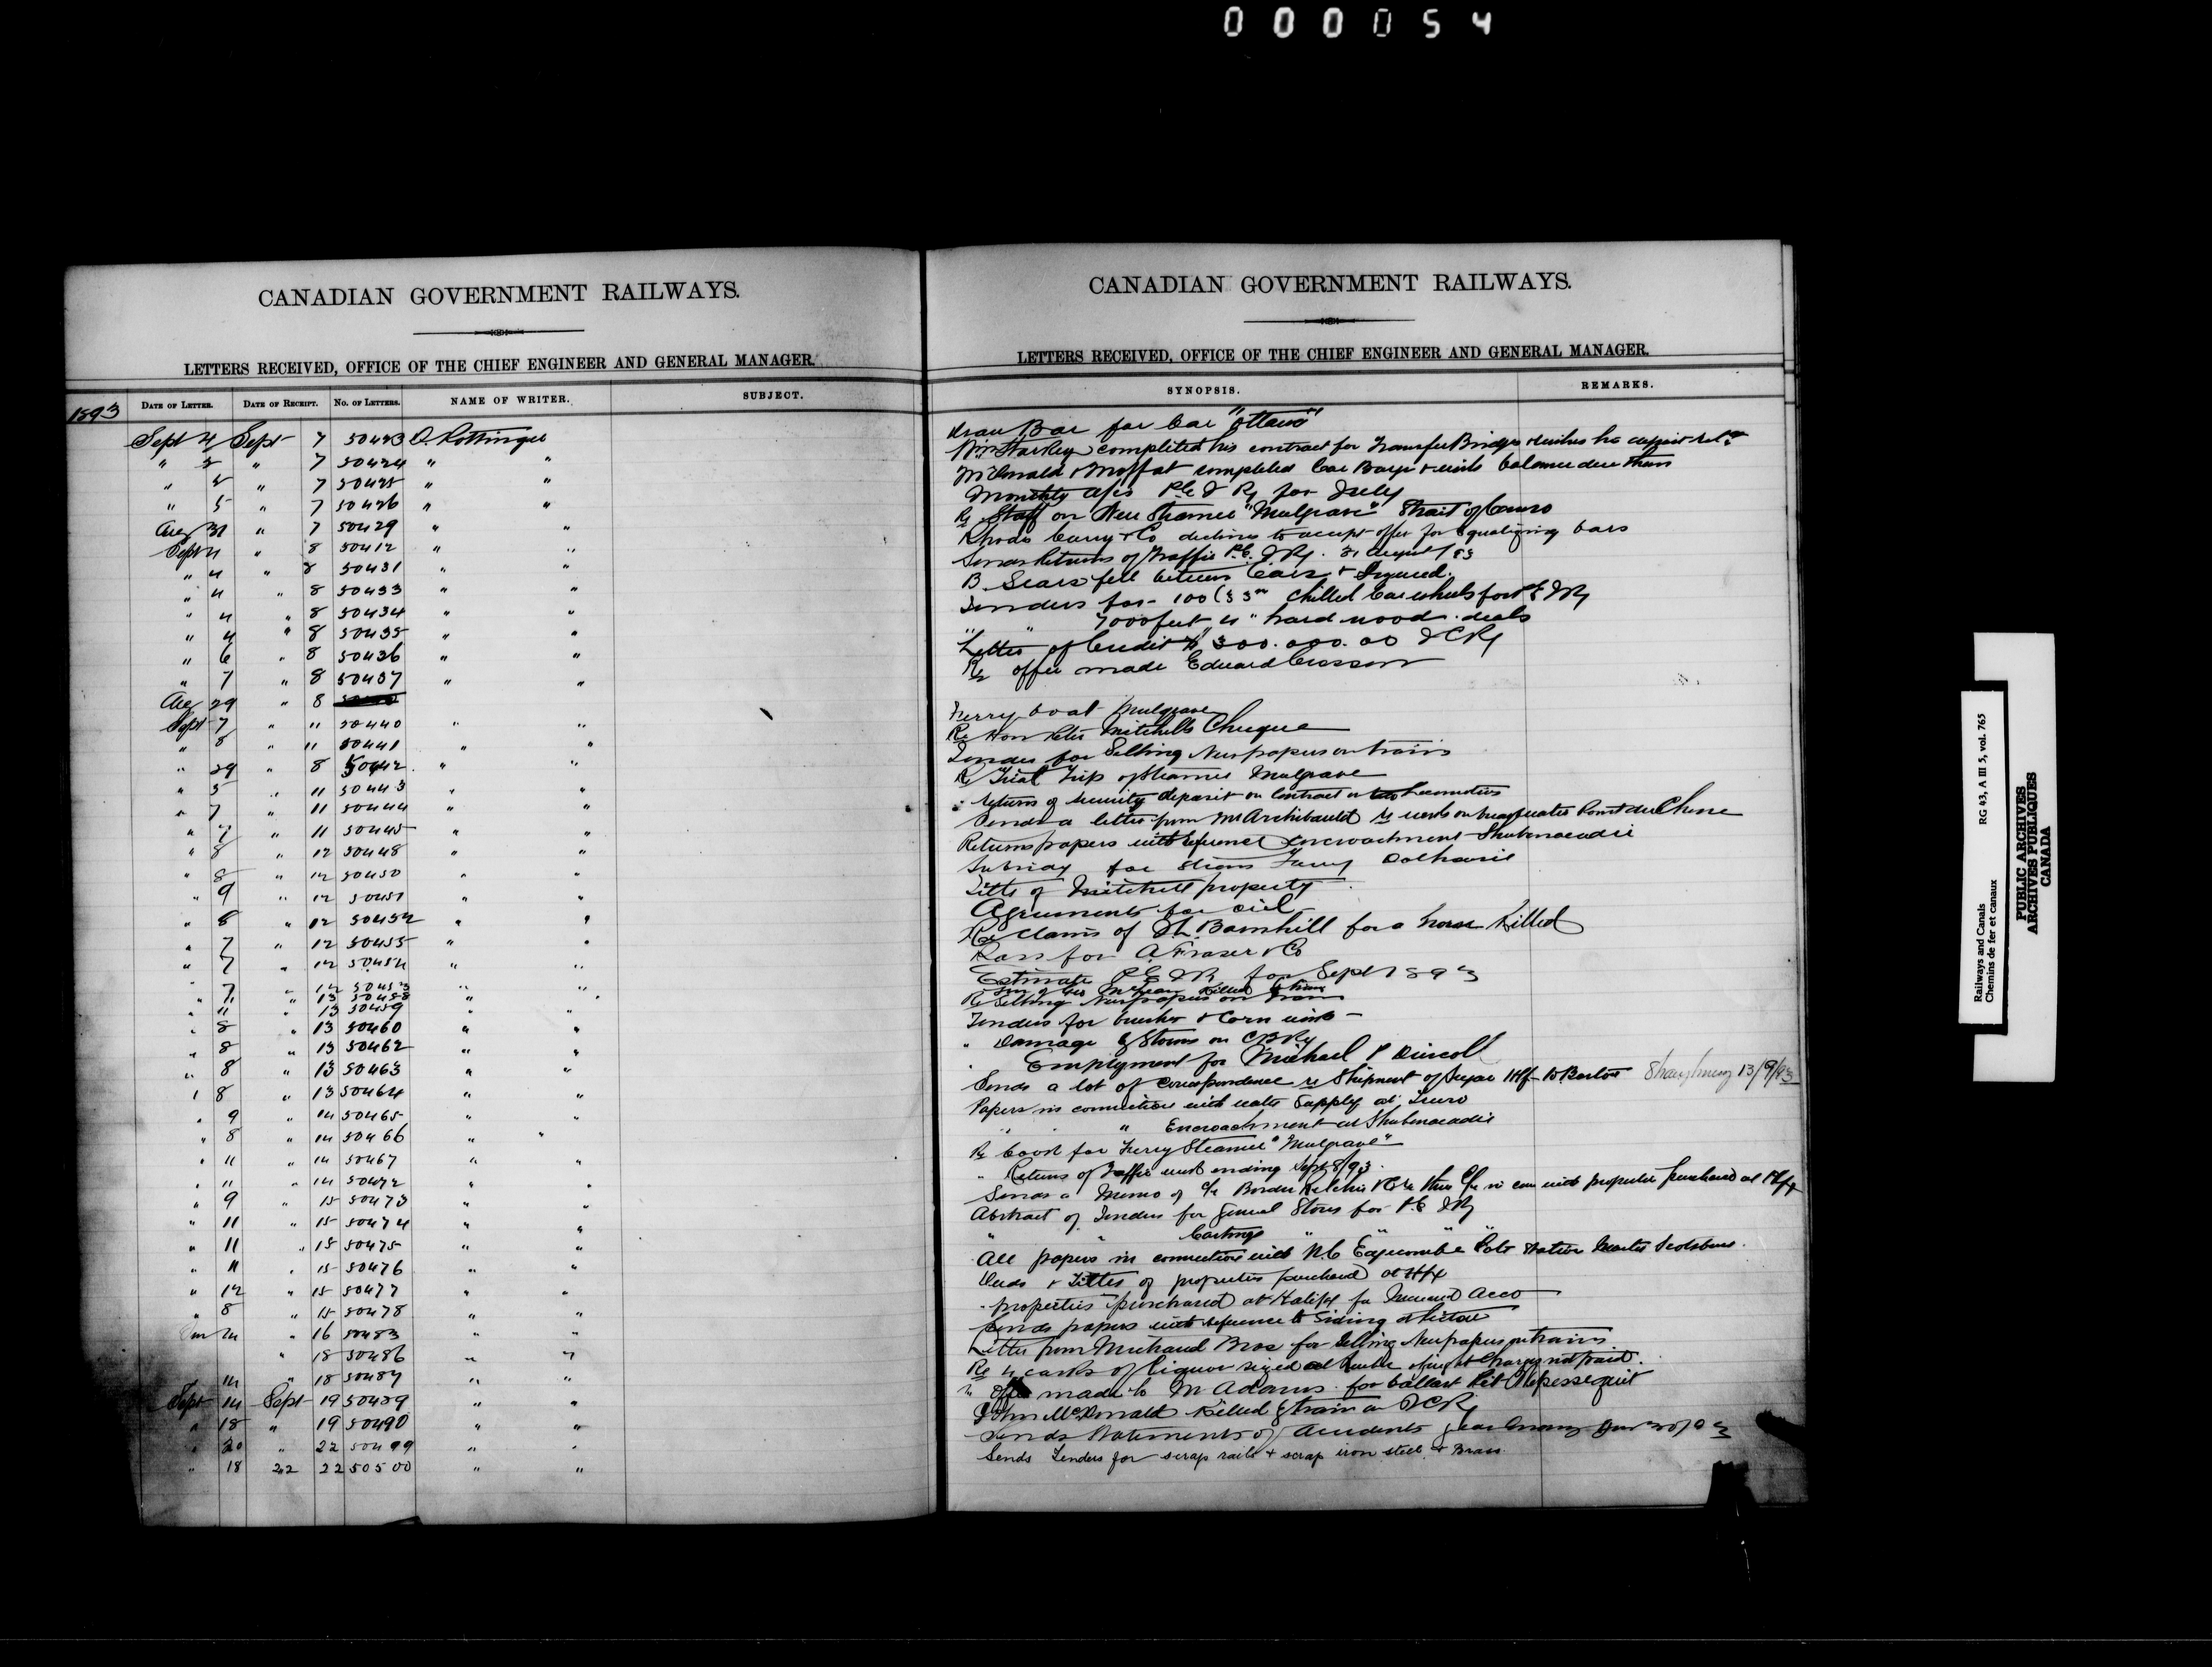 000054
CANADIAN GOVERNMENT RAILWAYS.
LETTERS RECEIVED, OFFICE OF THE CHIEF ENGINEER AND GENERAL MANAGER.
1893
DATE OF LETTER. DATE OF RECEIPT. NO. OF LETTERS. NAME OF WRITER. SUBJECT.
Sept 4 Sept 7 50423 D. Pottinger
" 5 " 7 50424 " "
" 5 " 7 50425 " "
" 5 " 7 50426 " "
Aug 31 " 7 50429 " "
Sept 4 " 8 50412 " "
" 4 " 8 50431 " "
" 4 " 8 50433 " "
" 4 " 8 50434 " "
" 4 " 8 50435 " "
" 6 " 8 50436 " "
" 7 " 8 50437 " "
Aug 29 " 8
Sept 7 " 11 50440 " "
" 8 " 11 50441 " "
" 29 " 8 50442 " "
" 5 " 11 50443 " "
" 7 " 11 50444 " "
" 7 " 11 50445 " "
" 8 " 12 50448 " "
" 8 " 12 50450 " "
" 9 " 12 50451 " "
" 8 " 12 50452 " "
" 7 " 12 50455 " "
" 7 " 12 50454 " "
" 7 " 12 50453 " "
" 11 " 13 50458 " "
" 11 " 13 50459 " "
" 8 " 13 50460 " "
" 8 " 13 50462 " "
" 8 " 13 50463 " "
" 8 " 13 50464 " "
" 9 " 14 50465 " "
" 8 " 14 50466 " "
" 11 " 14 50467 " "
" 11 " 14 50472 " "
" 9 " 15 50473 " "
" 11 " 15 50474 " "
" 11 " 15 50475 " "
" 11 " 15 50476 " "
" 12 " 15 50477 " "
" 8 " 15 50478 " "
" 16 50483 " "
" 18 50486 " "
14 " 18 50487 " "
Sept 14 Sept 19 50489 " "
" 18 " 19 50490 " "
" 20 " 22 50499 " "
" 18 22 22 50500 " "
CANADIAN GOVERNMENT RAILWAYS.
LETTERS RECEIVED, OFFICE OF THE CHIEF ENGINEER AND GENERAL MANAGER.
SYNOPSIS. REMARKS.
Draw Bar for Car "Ottawa"
Wm Starkey completed his contract for Transfer Bridges & wishes his deposit
McDonald & Moffat completed Car Barge & wants balance due them
Monthly a/cs P.E.I Ry for July
Re Staff on New Steamer "Mulgrave" Strait of Canso
Rhodes Curry & Co declines to accept offer for equalizing bars
Sends Returns of Traffic P.E.I Ry. 31 August/93
B. Sears fell between Cars & Injured.
Tenders for 100 (33in chilled Car wheels for P.E.I Ry
" " 7000 feet 4" hard wood deals
Letter of Credit $300.000.00 ICRy
Re offer made Edward Crossom
Ferry boat Mulgrave
Re Hon Peter Mitchells Cheque
Tender for Selling Newspapers on trains
Re Trial Trip of Steamer Mulgrave
" returns of security deposit on Contract locomotives
Sends a letter from Mr Archibauld re work on breakwater Point du Chene
Returns papers with reference Encroachment Shubenacadie
Subsidy for Steam Ferry Dalhousie
Title of Mitchell property
Agreements for oil
Re Claims of Barnhill for a horse Killed
Pass for A. Fraser & Co
Estimate P.E.I R for Sept 1893
McLean Killed by train
Re Selling Newspapers on train
Tenders for brushes & Corn
" Damage by Storms on C.B.Ry
" Employment for Michael P Driscoll
Sends a lot of correspondence re Shipment of Sugar Hfx to Boston Shaughnessy 13/9/93
Papers in connection with water Supply at Truro
" " " Encroachment at Shubenacadie
Re Cook for Ferry Steamer "Mulgrave"
" Returns of Traffic week ending Sept 8/93
Sends a Memo of in con with properties purchased at Hfx
Abstract of Tenders for General Stores for P.E.I Ry
" " Castings " " "
All papers in connection with Edgecombe late Station Master
Deeds & Titles of properties purchased at Hfx
" properties purchased at Halifax for Increased Acco
Sends papers with reference to Siding at Pictou
Letter from Michaud Bros for Selling Newspapers on trains
Re 4 casks of liquor seized at freight charges not paid.
" offer made to McAdams for ballast Pit Nepessiguit
John McDonald Killed by train on ICRy
Sends Statements of Accidents year ending June 30/93
Sends Tenders for scrap rails & scrap iron steel & Brass
Railways and Canals RG 43, A III 5, vol. 765
Chemins de fer et canaux
PUBLIC ARCHIVES
ARCHIVES PUBLIQUES
CANADA